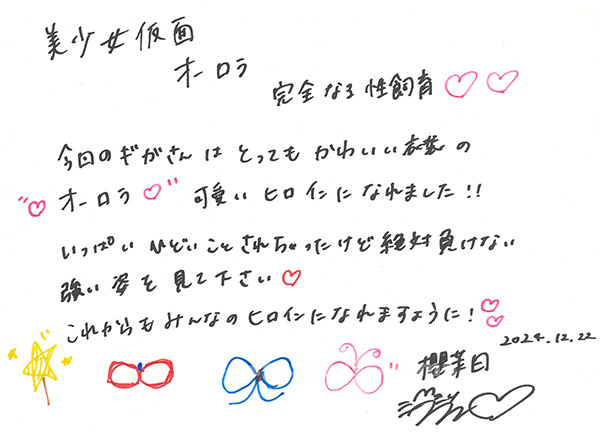 美少女仮面
オーロラ
完全なる性飼育♡♡
今回のギガさんはとってもかわいい衣装の
"♡オーロラ♡"可愛いヒロインになれました!!
いっぱいひどいことされちゃったけど絶対負けない
強い姿を見て下さい♡
これからもみんなのヒロインになれますように!
2024.12.22
櫻茉日